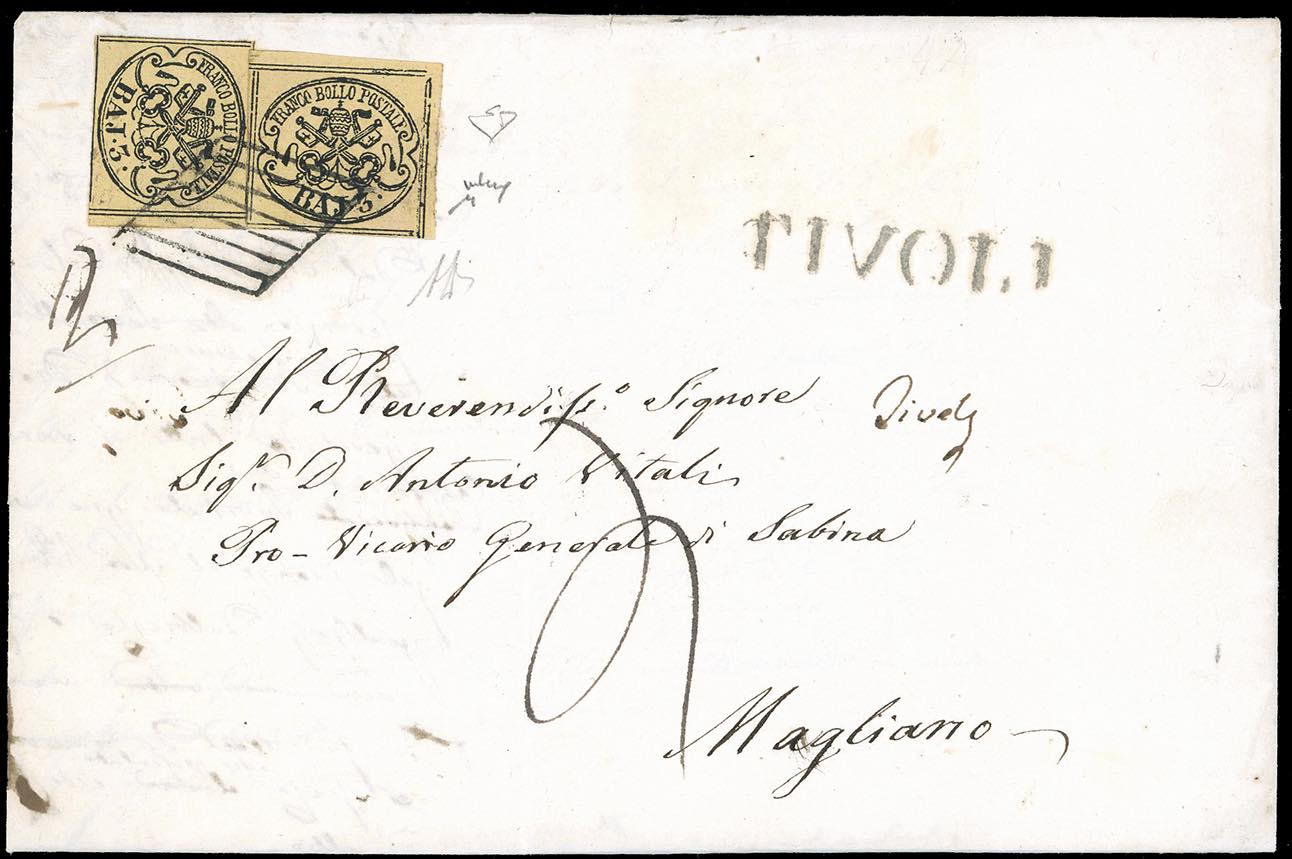 FRANCO BOLLO POSTALE
BAJ. 3.
FRANCO BOLLO POSTALE
BAJ. 3.
TIVOLI
Al Reverendiss.º Signore
Sigr. D. Antonio Vitali
Pro-Vicario Generale di Sabina
Magliano